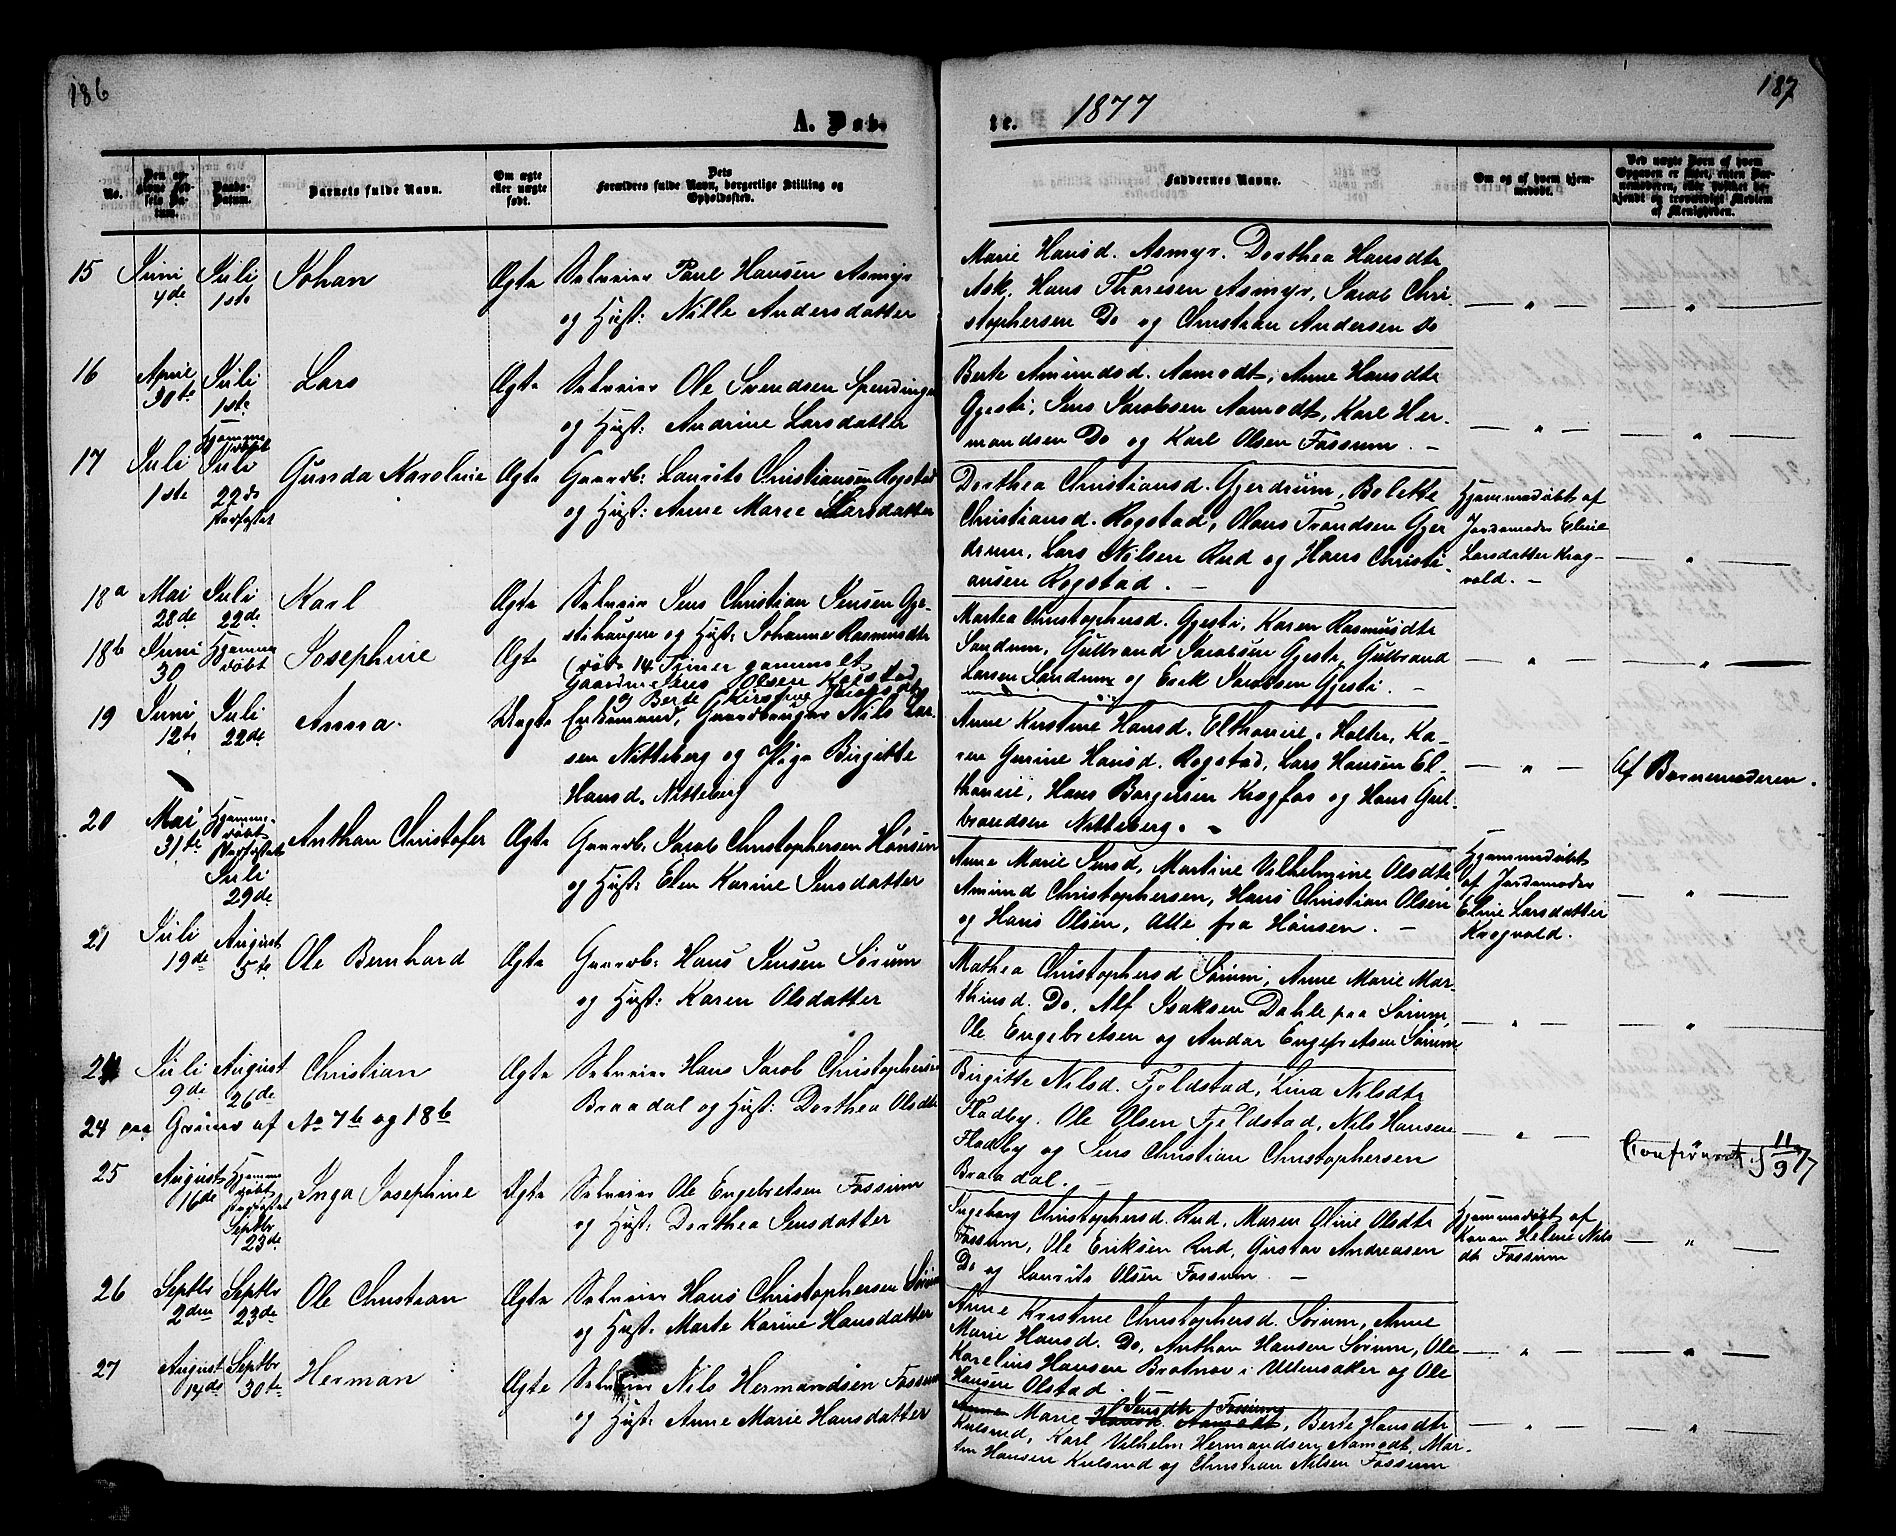 186
187
A. Døb-
te. 1877
No.
Den op-
givne Fød-
sels Da-
tum.
Daabs-
Datum.
Barnets fulde Navn.
Om ægte
eller uægte
født.
Dets
Forældres fulde Navn, borgerlige Stilling og
Opholdssted.
Faddernes Navne.
Om og af hvem hjem-
medøbt.
Ved uægte Børn af hvem
Opgaven er skeet, enten Bar-
nemoderen, eller hvilket be-
kjendt og troværdigt Medlem
af Menigheden.
15 Juni 4de Juli 1ste Johan Ægte Selveier Paul Hansen Asmyr
og Hust: Nille Andersdatter
Marie Hansd. Asmyr. Dorthea Hansdtr
Ask. Hans Thoresen Asmyr, Jacob Chri-
stophersen Do og Christian Andersen Do
16 April 30te Juli 1ste Lars Ægte Selveier Ole Svendsen Spendingen
og Hust: Andrine Larsdatter
Berte Amundsd. Aamodt, Anne Hansdtr
Gjesti, Jens Jacobsen Aamodt, Karl Her-
mandsen Do og Karl Olsen Fossum. –
17 Juli 1ste Hjemme døbt Juli 22de Gunda Karoline Ægte Gaardb: Laurits Christiansen Rogstad
og Hust: Anne Marie Larsdatter
Dorthea Christiansd. Gjerdrum, Bolette
Christiansd. Rogstad, Olaus Trondsen Gjer-
drum, Lars Nilsen Rud og Hans Christi-
ansen Rogstad. –
Hjemmedøbt af
Jordemoder Eline
Larsdatter Krog-
vold. –
18a Mai 28de Juli 22de Karl Ægte Selveier Jens Christian Jensen Gje-
stihaugen og Hust: Johanne Rasmusdtr
18b Juni 30 Hjemme døbt Josephine Ægte (død 14 Timer gammelt
Gaardm: Jens Olsen Kolstad
og Berte Kirstine
Martea Christophersd. Gjesti, Karen Rasmusdtr
Sandum, Gulbrand Jacobsen Gjesti, Gulbrand
Larsen Sandum og Erik Jacobsen Gjesti. –
19 Juni 12te Juli 22de Anna. Uægte Enkemand, Gaardbruger Nils Lar-
sen Nitteberg og Pige Birgitte
Hansd. Nitteberg
Anne Kirstine Hansd. Elthonie, Holter, Ka-
ren Gurine Hansd. Rogstad, Lars Hansen El-
thonie, Hans Borgersen Krogfos og Hans Gul-
brandsen Nitteberg. –
Af Barnemoderen.
20 Mai 31te Hjemme- døbt Juli 29de Anthon Christofer Ægte Gaardb. Jacob Christophersen Hønsen
og Hust: Elen Karine Jensdatter
Anne Marie Jensd, Martine Vilhelmine Olsdtr,
Amund Christophersen, Hans Christian Olsen
og Hans Olsen, Alle fra Hønsen. –
Hjemmedøbt
af Jordemoder
Eline Larsdatter
Krogvold.
21 Juli 19de August 5te Ole Bernhard Ægte Gaardb: Hans Jensen Sørum
og Hust: Karen Olsdatter
Mathea Christophersd Sørum, Anne Marie Mar-
thinsd. Do, Alf Isaksen Dahle paa Sørum,
Ole Engebretsen og Andor Engebretsen Sørum
Juli 9de August 26de Christian Ægte Selveier Hans Jacob Christophersen
Braadal og Hust: Dorthea Olsdtr
Birgitte Nilsd. Fjeldstad, Lina Nilsdtr
Fladby. Ole Olsen Fjeldstad, Nils Hansen
Fladby og Jens Christian Christophersen
Braadal. –
24 paa Grund af No 7b og 18b
11/9 77
25 August 16de Hjemme døbt Septbr 23de Inga Josephine Ægte Selveier Ole Engebretsen Fossum
og Hust: Dorthea Jensdatter
Ingeborg Christophersd. Rud, Maren Oline Olsdtr
Fossum, Ole Eriksen Rud, Gustav Andreasen
Do og Laurits Olsen Fossum. –
Hjemmedøbt af
Karen Helene Nils
dt Fossum
26 Septbr 2den Septbr 23de Ole Christian Ægte Selveier Hans Christophersen Sørum
og Hust. Marte Karine Hansdatter
Anne Kristine Christophersd. Sørum, Anne
Marie Hansd. Do, Anthon Hansen Sørum, Ole
Karelius Hansen Brotnov i Ullensaker og Ole
Hansen Olstad.
27 August 14de Septbr 30te Herman Ægte Selveier Nils Hermandsen Fossum
og Hust: Anne Marie Hansdatter
Anne Marie Hansd. Aamodt, Jensdtr Fossum, Berte Hansdtr
Kulsrud, Karl Vilhelm Hermandsen Aamodt, Mar-
tin Hansen Kulsrud og Christian Nilsen Fossum